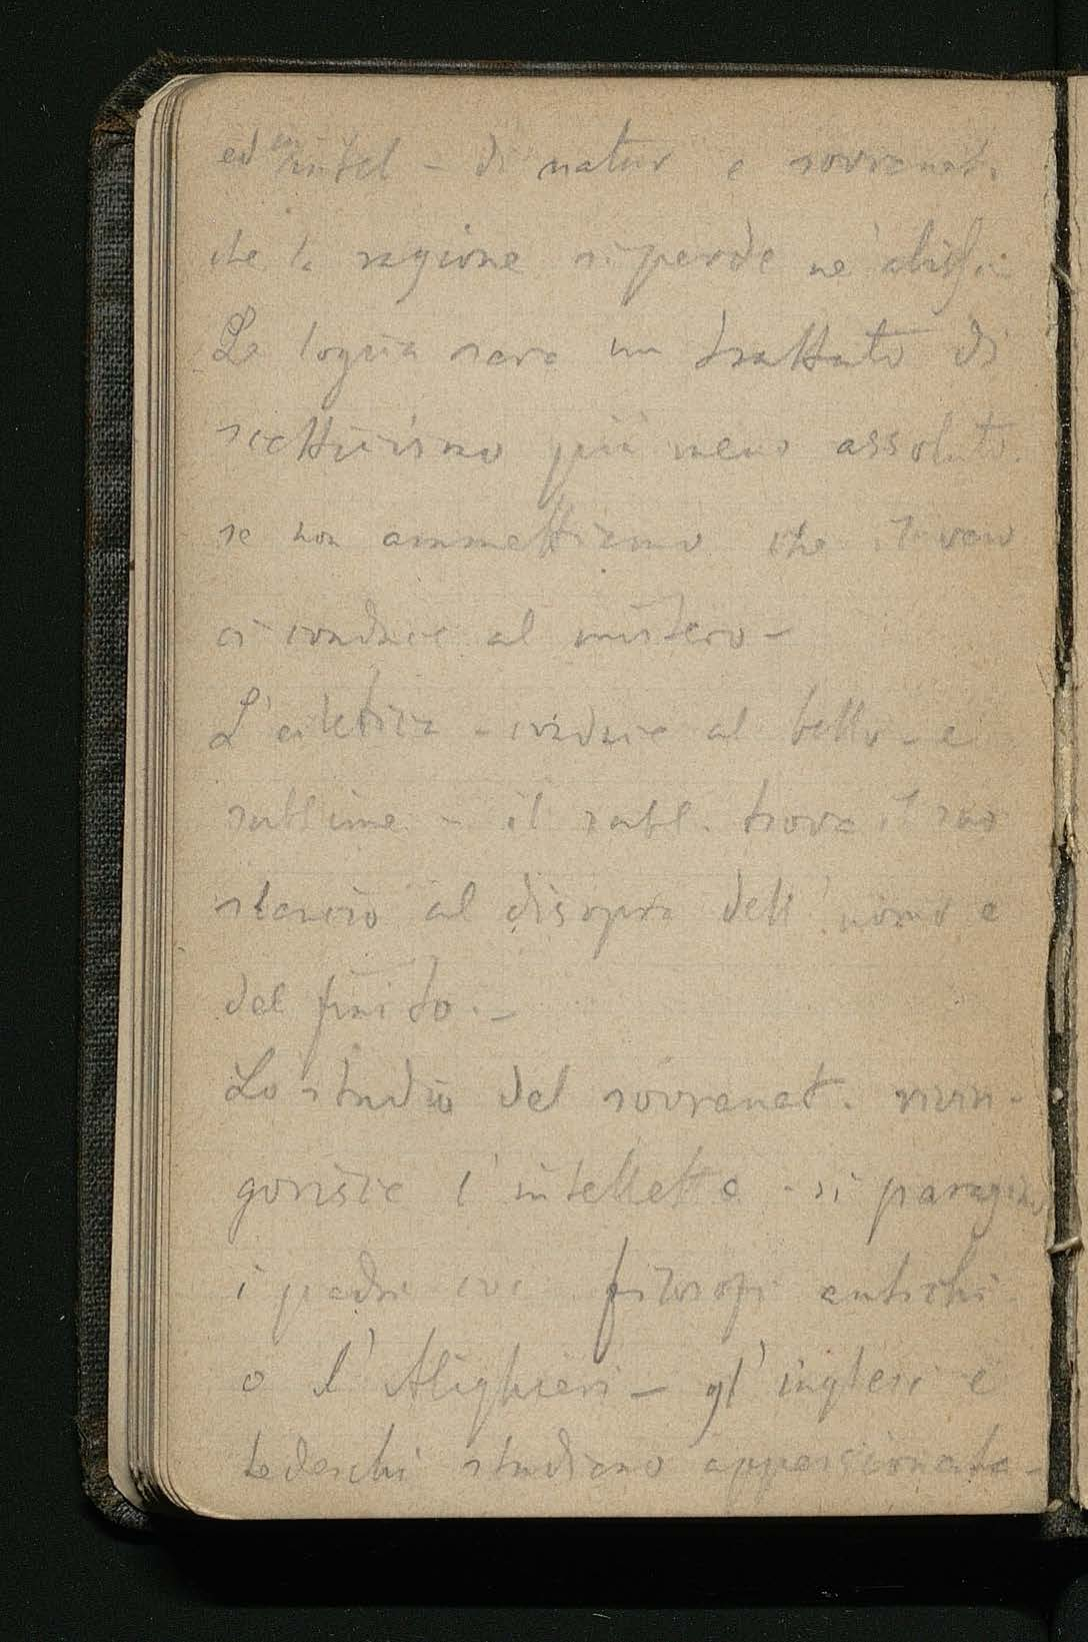 ed intel - di natur e sovranat.
che la ragione si perde né
La logica sarà un trattato di
scetticismo più meno assoluto.
se non ammettiamo che il vero
ci conduce al mistero -
L'estetica - conduce al bello - e
sublime - il subl. trova il suo
slancio al disopra dell'uomo e
del finito. -
Lo studio del sovranat. rinvi-
gorisce l'intelletto - si paragoni
i padri coi filosofi antichi -
o l'Alighieri - gl'inglesi e
tedeschi studiano appassionata-